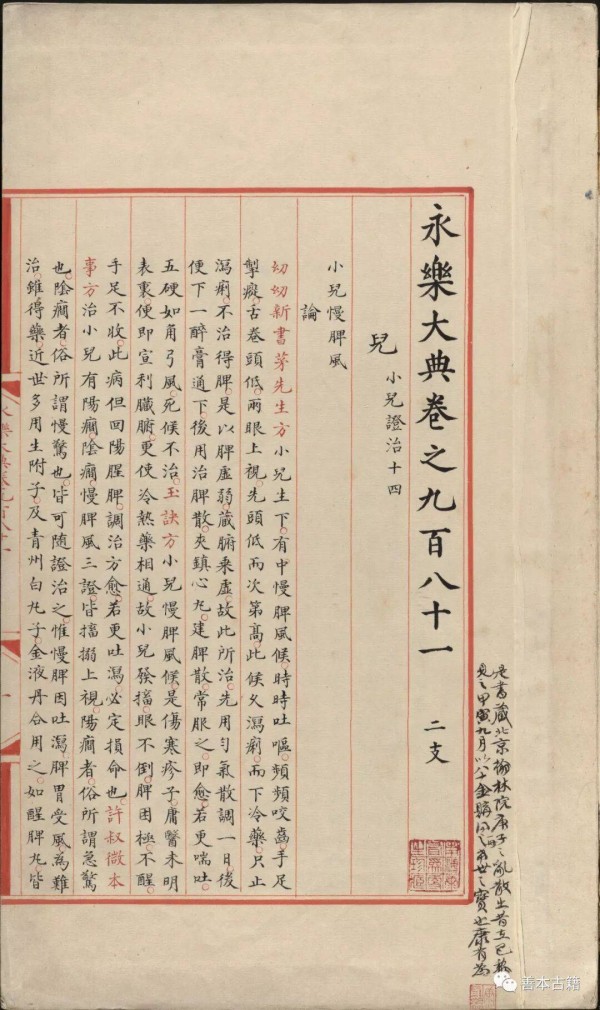 永樂大典卷之九百八十一 二支
兒 小兒證治十四
小兒慢脾風
論
幼幼新書茅先生方小兒生下有中慢脾風候時時吐嘔頻頻咬齒手足
掣瘲舌卷頭低兩眼上視先頭低而次第高此候久瀉痢而下冷藥只止
瀉痢不治得脾是以脾虛弱藏腑乘虛故此所治先用勻氣散調一日後
便下一醉膏通下後用治脾散夾鎮心丸建脾散常服之即愈若更喘吐
五硬如角弓風死候不治玉訣方小兒慢脾風候是傷寒疹子庸醫未明
表裏便即宣利臟腑更使冷熱藥相通故小兒發搐眼不倒脾困極不醒
手足不收此病但回陽腥脾調治方愈若更吐瀉必定損命也許叔微本
事方治小兒有陽癇陰癇慢脾風三證皆搐搦上視陽癇者俗所謂急驚
也陰癇者俗所謂慢驚也皆可隨證治之惟慢脾因吐瀉脾胃受風為難
治錐得藥近世多用生附子及青州白丸子金液丹合用之如醒脾丸皆
是書藏北京翰林院庚子之亂散出昔在巴黎
見之甲寅九月以八十金購世之寶也康有為
善本古籍